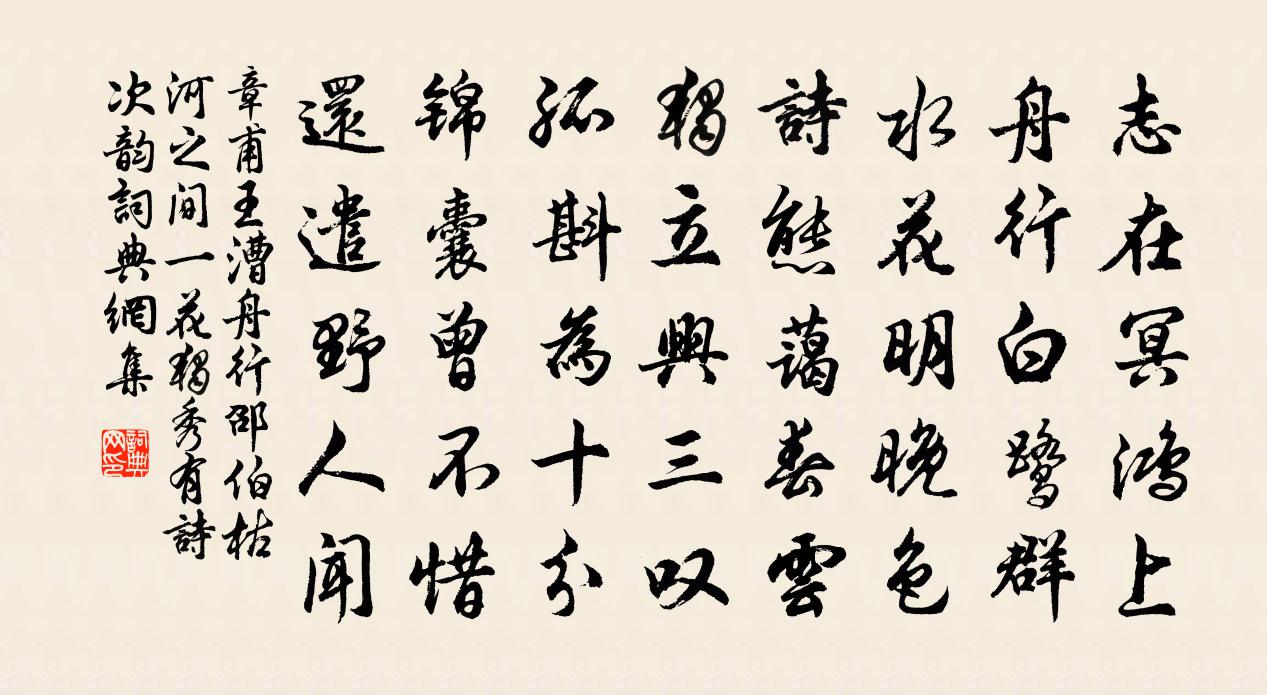 志在冥鸿上
舟行白鹭群
水花明晚色
詩態蔼春雲
獨立興三叹
孤斟為十分
锦囊曾不惜
還遣野人聞
章甫王漕舟行邵伯枯
河之间一花獨秀有詩
次韵詞典網集
詞典网印